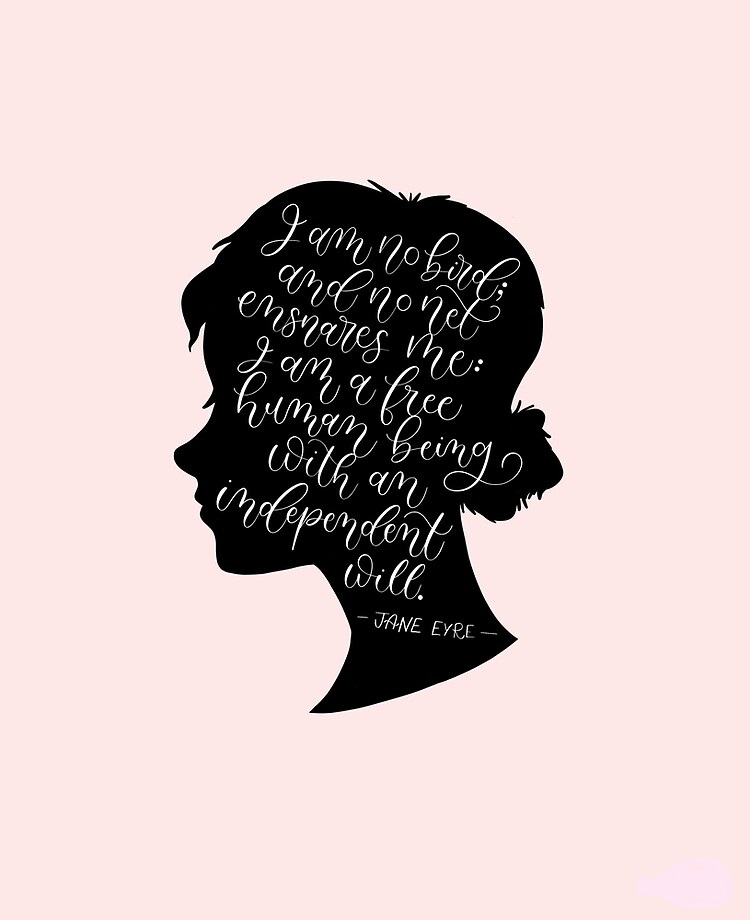 I am no bird;
and no net
ensnares me:
I am a free
human being
with an
independent
will.
– JANE EYRE –